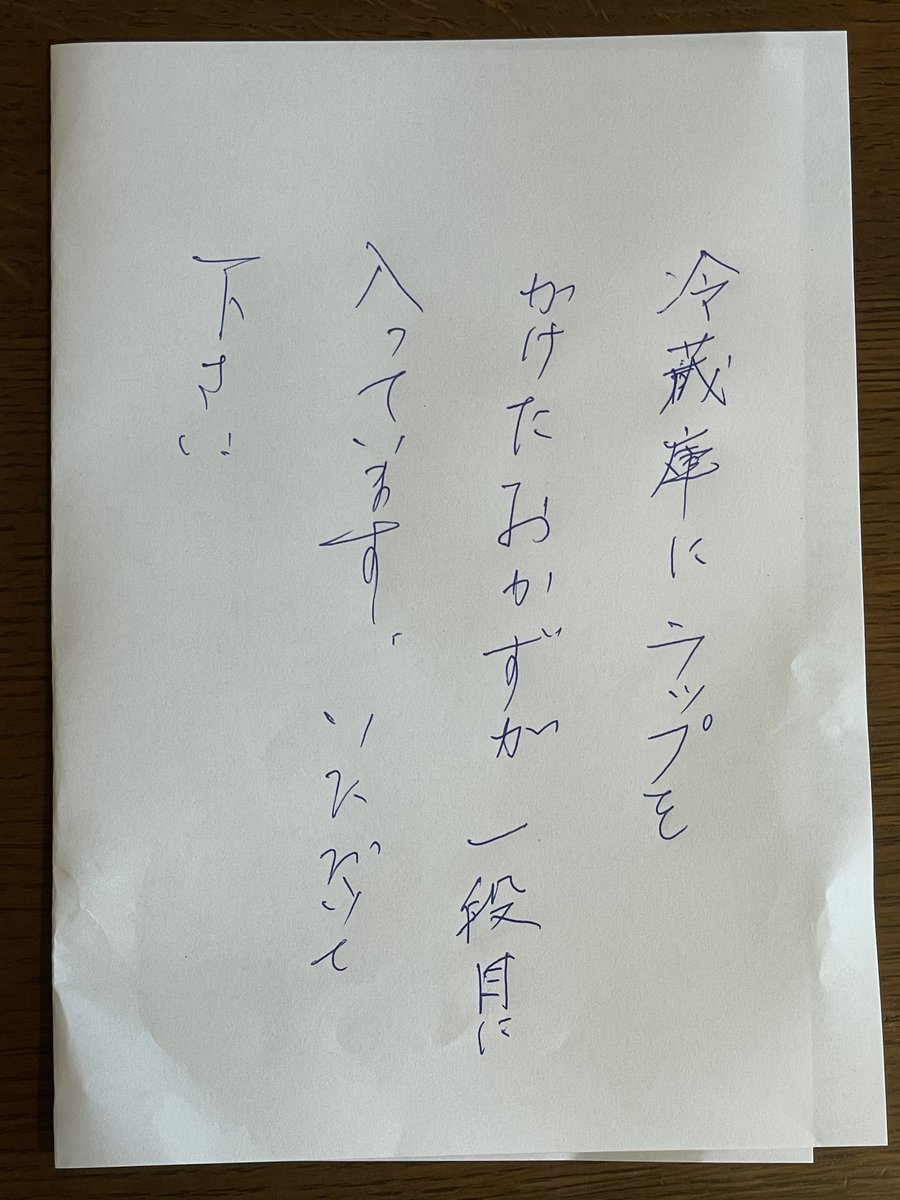 冷蔵庫にラップを
かけたおかずが一段目に
入っています、いただいて
下さい